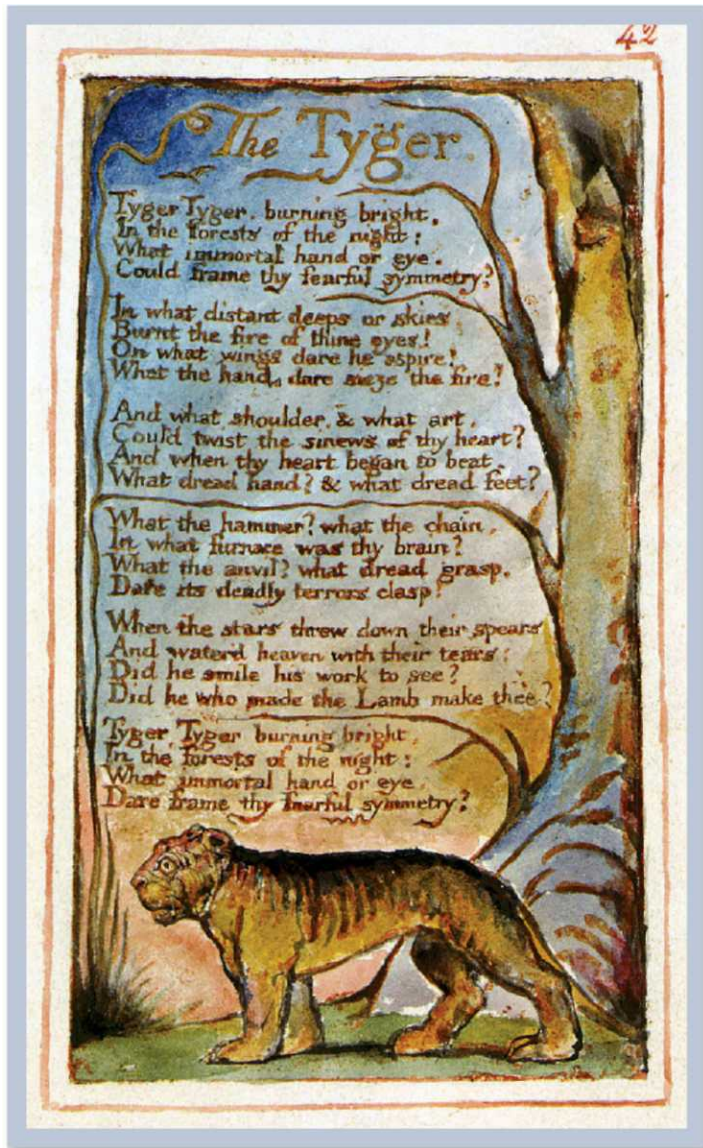 42
The Tyger.
Tyger Tyger. burning bright,
In the forests of the night;
What immortal hand or eye.
Could frame thy fearful symmetry?
In what distant deeps or skies
Burnt the fire of thine eyes!
On what wings dare he aspire!
What the hand, dare sieze the fire!
And what shoulder, & what art,
Could twist the sinews of thy heart?
And when thy heart began to beat,
What dread hand? & what dread feet?
What the hammer? what the chain,
In what furnace was thy brain?
What the anvil? what dread grasp,
Dare its deadly terrors clasp!
When the stars threw down their spears
And waterd heaven with their tears:
Did he smile his work to see?
Did he who made the Lamb make thee?
Tyger Tyger burning bright,
In the forests of the night:
What immortal hand or eye
Dare frame thy fearful symmetry?